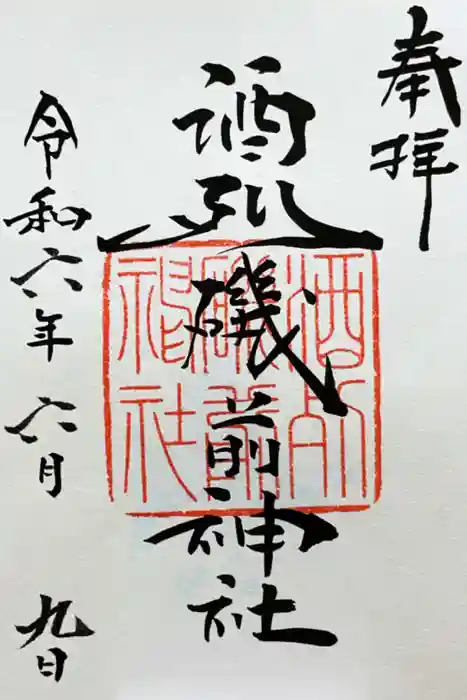 奉拝
酒列磯前神社
令和六年六月九日
酒列
磯前
神社